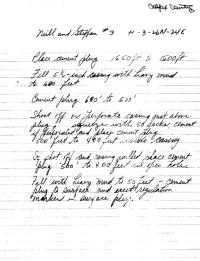 Neill and Steffan #3 H-3-26N-24E
Place cement plug 1550 ft to 1500 ft
Fill 5½-inch casing with heavy mud
to 600 feet
Cement plug 600' to 500'
Shoot off or perforate casing just above
plug - squeeze with 50 sacks cement
if perforated and place cement plug
500 feet to 400 feet inside casing
If shot off and casing pulled place cement
plug 500' to 400 feet in open hole.
Fill with heavy mud to 50 feet - cement
plug to surface and erect regulation
marker - surface plug.